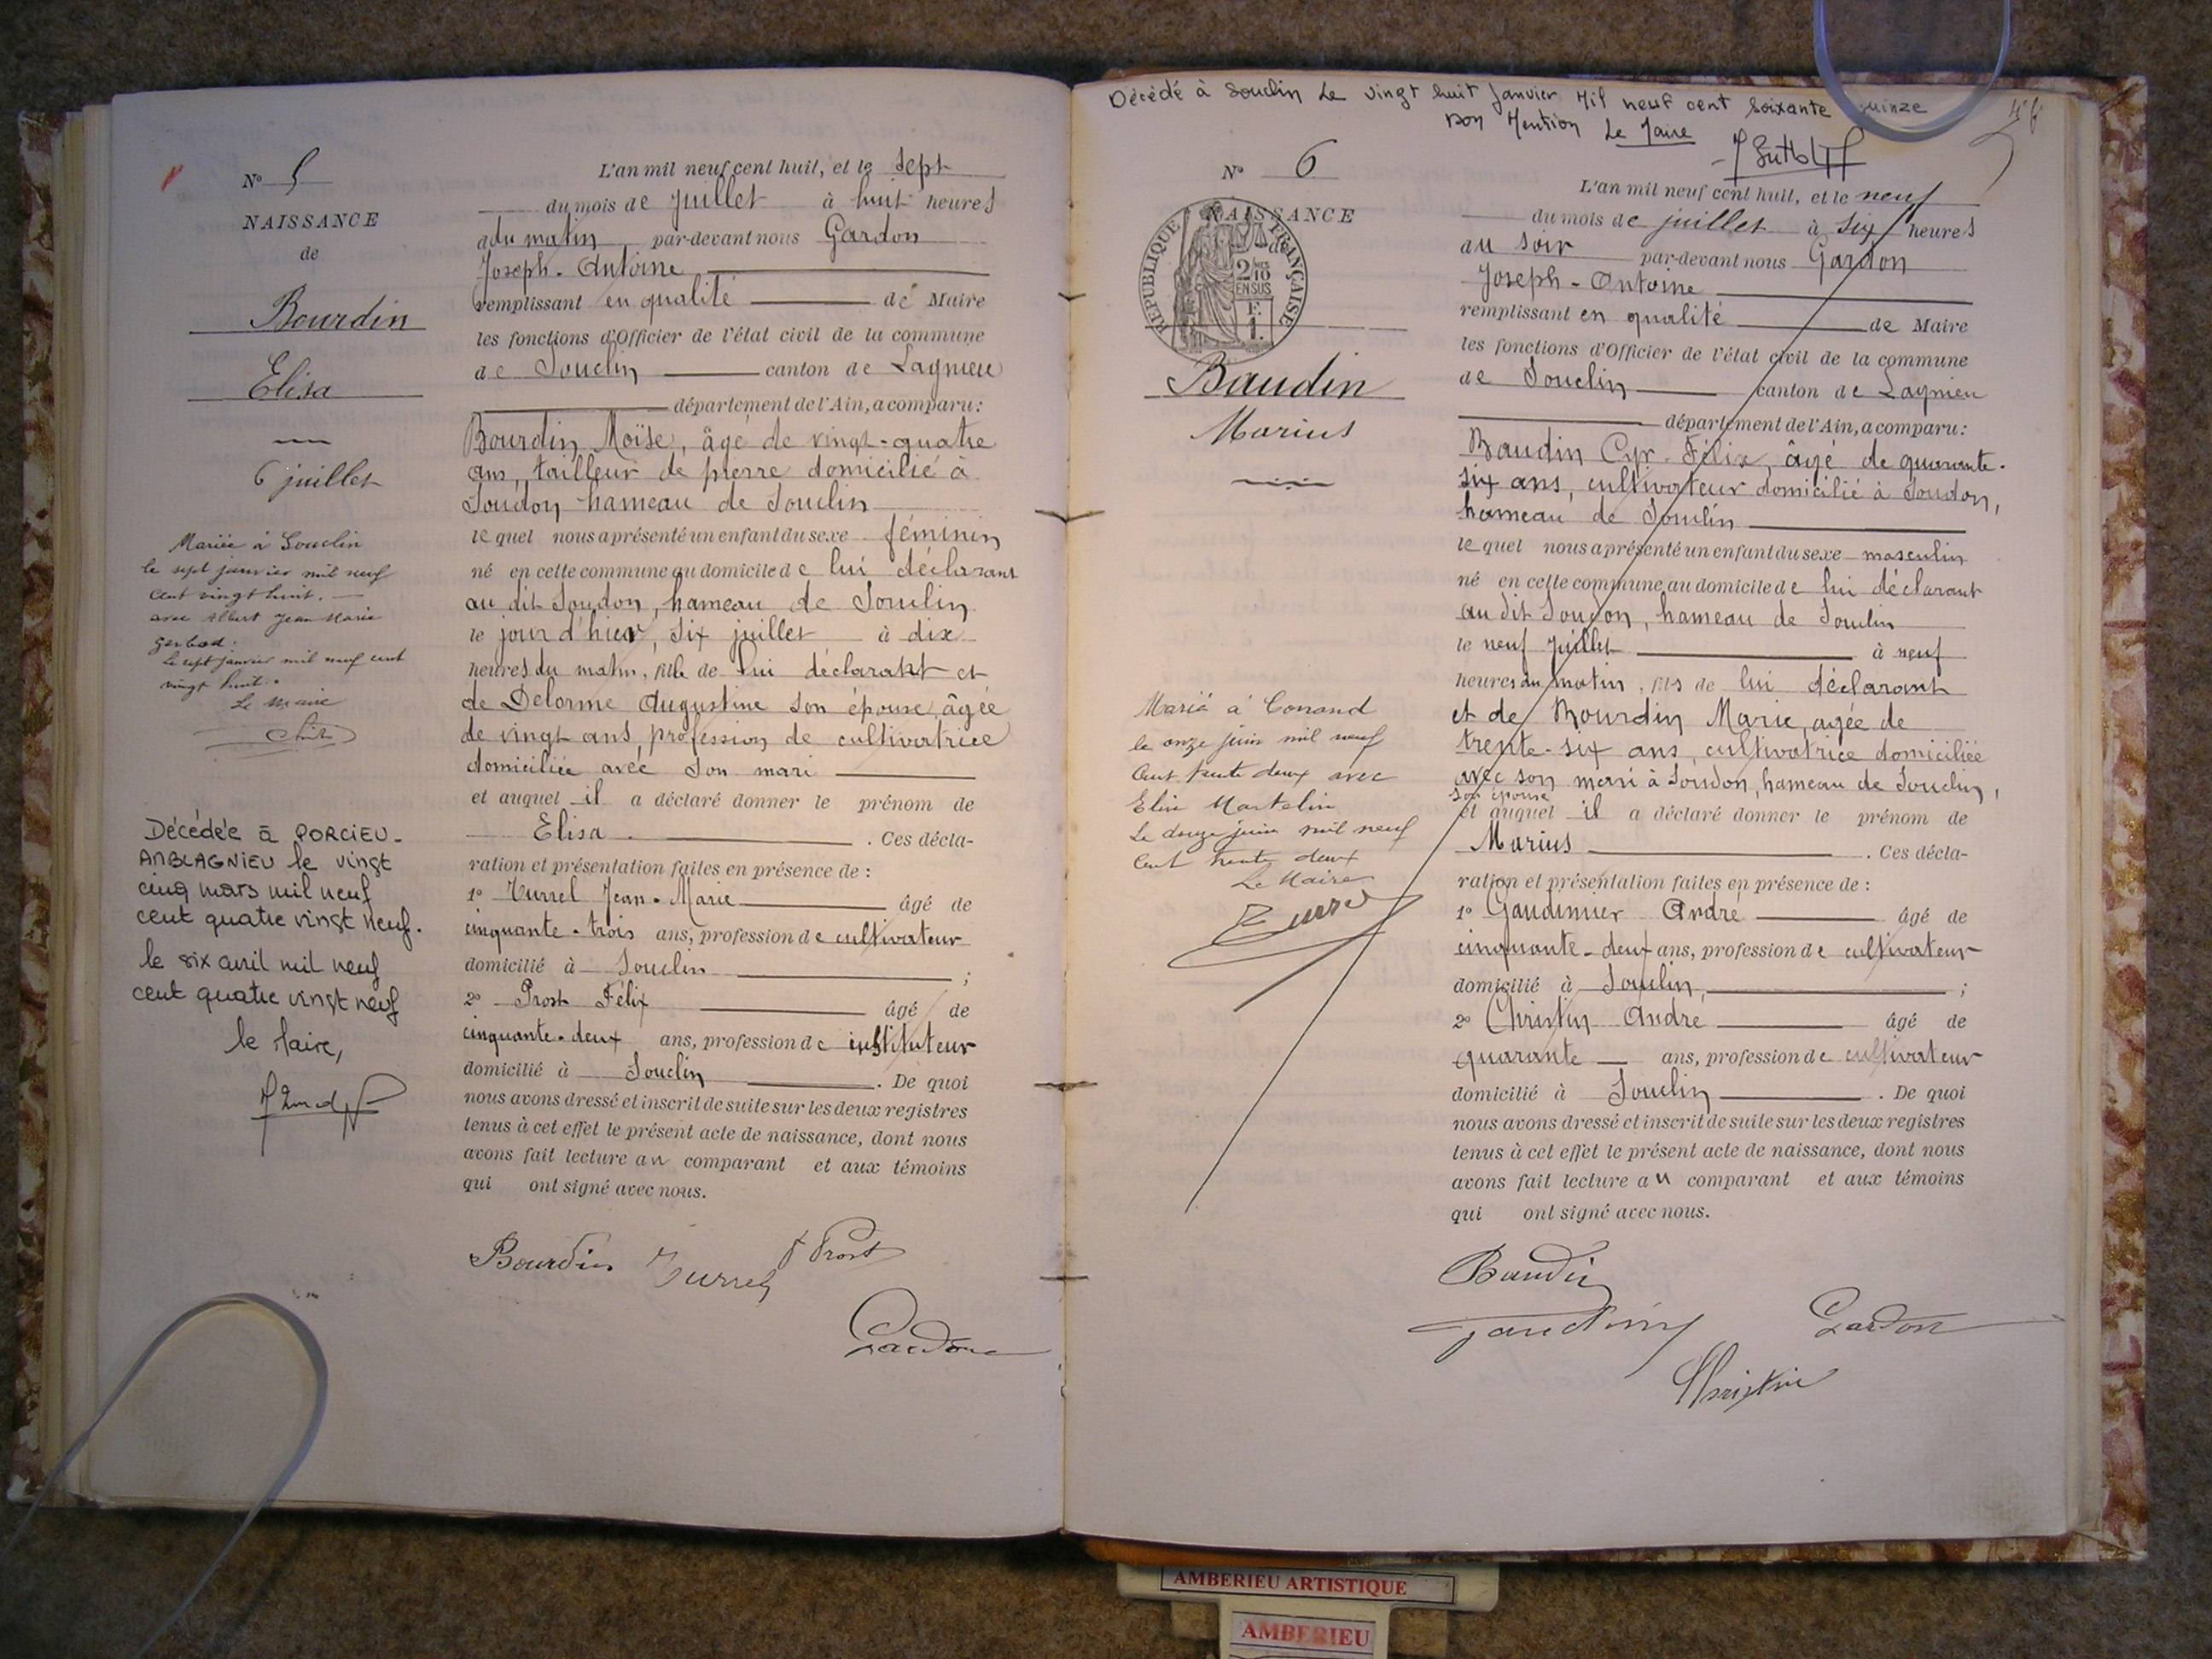 N° 5
NAISSANCE
de
Bourdin
Elisa
6 juillet
Mariée à Souclin
le sept janvier mil neuf
cent vingt huit.
avec Albert Jean Marie
Gerbod.
le sept janvier mil neuf cent
vingt huit.
Le maire
Décédée à PORCIEU-
AMBLAGNIEU le vingt
cinq mars mil neuf
cent quatre vingt neuf.
le six avril mil neuf
cent quatre vingt neuf
le Maire,
L'an mil neuf cent huit, et le sept
du mois de juillet à huit heures
du matin par-devant nous Gardon
Joseph-Antoine
remplissant en qualité de Maire
les fonctions d'Officier de l'état civil de la commune
de Souclin canton de Lagnieu
département de l'Ain, a comparu:
Bourdin Moïse, âgé de vingt-quatre
ans, tailleur de pierre domicilié à
Soudon hameau de Souclin
lequel nous a présenté un enfant du sexe féminin
né en cette commune au domicile de lui déclarant
au dit Soudon, hameau de Souclin
le jour d'hier, six juillet à dix
heures du matin, fille de lui déclarant et
de Delorme Augustine son épouse, âgée
de vingt ans, profession de cultivatrice
domiciliée avec son mari
et auquel il a déclaré donner le prénom de
Elisa. Ces décla-
ration et présentation faites en présence de :
1° Turrel Jean-Marie âgé de
cinquante-trois ans, profession de cultivateur
domicilié à Souclin ;
2° Prost Félix âgé de
cinquante-deux ans, profession de instituteur
domicilié à Souclin. De quoi
nous avons dressé et inscrit de suite sur les deux registres
tenus à cet effet le présent acte de naissance, dont nous
avons fait lecture au comparant et aux témoins
qui ont signé avec nous.
Bourdin Turrel F Prost
Gardon
Décédé à Souclin Le vingt huit Janvier Mil neuf cent soixante quinze
Don Mention Le Maire
N° 6
NAISSANCE
de
RÉPUBLIQUE FRANÇAISE
2/10
EN SUS
Baudin
Marius
Marié à Conand
le onze juin mil neuf
cent trente deux avec
Elise Martelin
Le douze juin mil neuf
cent trente deux
Le Maire
Turrel
L'an mil neuf cent huit, et le neuf
du mois de juillet à six heures
au soir par-devant nous Gardon
Joseph-Antoine
remplissant en qualité de Maire
les fonctions d'Officier de l'état civil de la commune
de Souclin canton de Lagnieu
département de l'Ain, a comparu:
Baudin Cyr-Félix, âgé de quarante-
six ans, cultivateur domicilié à Soudon,
hameau de Souclin
lequel nous a présenté un enfant du sexe masculin
né en cette commune au domicile de lui déclarant
au dit Soudon, hameau de Souclin
le neuf juillet à neuf
heures du matin, fils de lui déclarant
et de Bourdin Marie, agée de
trente-six ans, cultivatrice domiciliée
avec son mari à Soudon, hameau de Souclin,
son épouse
et auquel il a déclaré donner le prénom de
Marius. Ces décla-
ration et présentation faites en présence de :
1° Gaudinier André âgé de
cinquante-deux ans, profession de cultivateur
domicilié à Souclin, ;
2° Christin André âgé de
quarante ans, profession de cultivateur
domicilié à Souclin. De quoi
nous avons dressé et inscrit de suite sur les deux registres
tenus à cet effet le présent acte de naissance, dont nous
avons fait lecture au comparant et aux témoins
qui ont signé avec nous.
Baudin
Gardon
Christin
AMBERIEU ARTISTIQUE
AMBERIEU